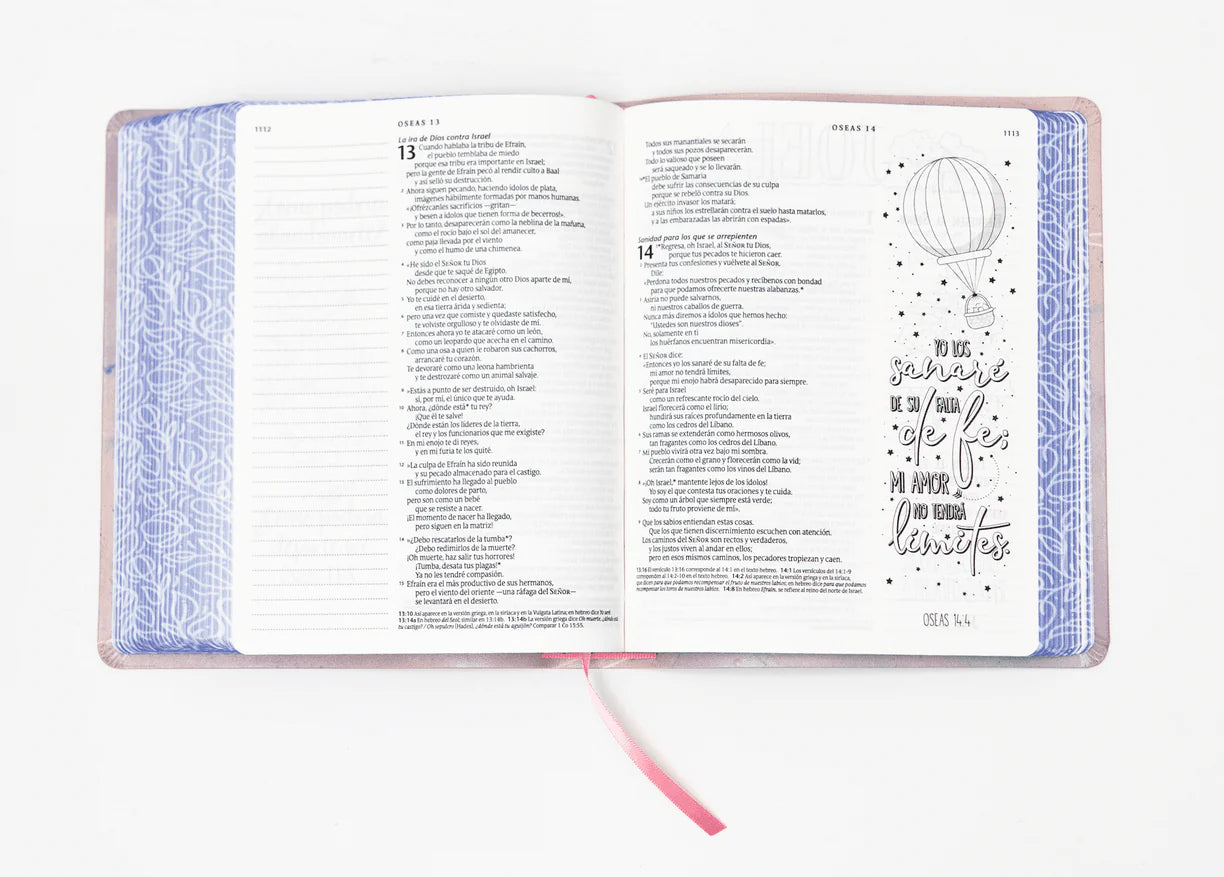 1112
OSEAS 13
La ira de Dios contra Israel
13 Cuando hablaba la tribu de Efraín,
el pueblo temblaba de miedo
porque esa tribu era importante en Israel;
pero la gente de Efraín pecó al rendir culto a Baal
y así selló su destrucción.
2 Ahora siguen pecando, haciendo ídolos de plata,
imágenes hábilmente formadas por manos humanas.
«¡Ofrézcanles sacrificios —gritan—
y besen a ídolos que tienen forma de becerros!».
3 Por lo tanto, desaparecerán como la neblina de la mañana,
como el rocío bajo el sol del amanecer,
como paja llevada por el viento
y como el humo de una chimenea.
4 «He sido el SEÑOR tu Dios
desde que te saqué de Egipto.
No debes reconocer a ningún otro Dios aparte de mí,
porque no hay otro salvador.
5 Yo te cuidé en el desierto,
en esa tierra árida y sedienta;
6 pero una vez que comiste y quedaste satisfecho,
te volviste orgulloso y te olvidaste de mí.
7 Entonces ahora yo te atacaré como un león,
como un leopardo que acecha en el camino.
8 Como una osa a quien le robaron sus cachorros,
arrancaré tu corazón.
Te devoraré como una leona hambrienta
y te destrozaré como un animal salvaje.
9 »Estás a punto de ser destruido, oh Israel:
sí, por mí, el único que te ayuda.
10 Ahora, ¿dónde está* tu rey?
¡Que él te salve!
¿Dónde están los líderes de la tierra,
el rey y los funcionarios que me exigiste?
11 En mi enojo te di reyes,
y en mi furia te los quité.
12 »La culpa de Efraín ha sido reunida
y su pecado almacenado para el castigo.
13 El sufrimiento ha llegado al pueblo
como dolores de parto,
pero son como un bebé
que se resiste a nacer.
¡El momento de nacer ha llegado,
pero siguen en la matriz!
14 »¿Debo rescatarlos de la tumba*?
¿Debo redimirlos de la muerte?
¡Oh muerte, haz salir tus horrores!
¡Tumba, desata tus plagas!*
Ya no les tendré compasión.
15 Efraín era el más productivo de sus hermanos,
pero el viento del oriente —una ráfaga del SEÑOR—
se levantará en el desierto.
13:10 Así aparece en la versión griega, en la siríaca y en la Vulgata Latina; en hebreo dice Yo seré
13:14a En hebreo del Seol; similar en 13:14b. 13:14b La versión griega dice Oh muerte, ¿dónde está
tu castigo? / Oh sepulcro [Hades], ¿dónde está tu aguijón? Comparar 1 Co 15:55.
OSEAS 14
1113
Todos sus manantiales se secarán
y todos sus pozos desaparecerán.
Todo lo valioso que poseen
será saqueado y se lo llevarán.
16 *El pueblo de Samaria
debe sufrir las consecuencias de su culpa
porque se rebeló contra su Dios.
Un ejército invasor los matará;
a sus niños los estrellarán contra el suelo hasta matarlos,
y a las embarazadas las abrirán con espadas».
Sanidad para los que se arrepienten
14 1*Regresa, oh Israel, al SEÑOR tu Dios,
porque tus pecados te hicieron caer.
2 Presenta tus confesiones y vuélvete al SEÑOR.
Dile:
«Perdona todos nuestros pecados y recíbenos con bondad
para que podamos ofrecerte nuestras alabanzas.*
3 Asiria no puede salvarnos,
ni nuestros caballos de guerra.
Nunca más diremos a ídolos que hemos hecho:
"Ustedes son nuestros dioses".
No, solamente en ti
los huérfanos encuentran misericordia».
4 El SEÑOR dice:
«Entonces yo los sanaré de su falta de fe;
mi amor no tendrá límites,
porque mi enojo habrá desaparecido para siempre.
5 Seré para Israel
como un refrescante rocío del cielo.
Israel florecerá como el lirio;
hundirá sus raíces profundamente en la tierra
como los cedros del Líbano.
6 Sus ramas se extenderán como hermosos olivos,
tan fragantes como los cedros del Líbano.
7 Mi pueblo vivirá otra vez bajo mi sombra.
Crecerán como el grano y florecerán como la vid;
serán tan fragantes como los vinos del Líbano.
8 »¡Oh Israel,* mantente lejos de los ídolos!
Yo soy el que contesta tus oraciones y te cuida.
Soy como un árbol que siempre está verde;
todo tu fruto proviene de mí».
9 Que los sabios entiendan estas cosas.
Que los que tienen discernimiento escuchen con atención.
Los caminos del SEÑOR son rectos y verdaderos,
y los justos viven al andar en ellos;
pero en esos mismos caminos, los pecadores tropiezan y caen.
13:16 El versículo 13:16 corresponde al 14:1 en el texto hebreo. 14:1 Los versículos del 14:1-9
corresponden al 14:2-10 en el texto hebreo. 14:2 Así aparece en la versión griega y en la siríaca,
que dicen para que podamos recompensar el fruto de nuestros labios; en hebreo dice para que podamos
recompensar los toros de nuestros labios. 14:8 En hebreo Efraín, se refiere al reino del norte de Israel.
YO LOS
sanaré
DE SU FALTA
de fe;
MI AMOR
NO TENDRÁ
límites.
OSEAS 14:4